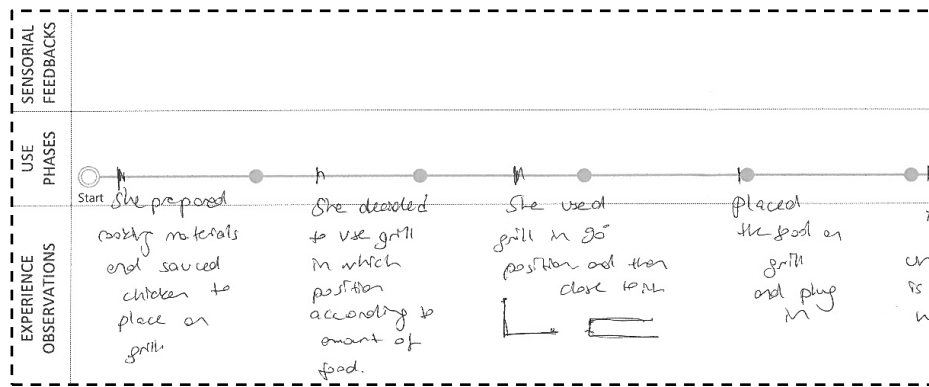 SENSORIAL
FEEDBACKS
USE
PHASES
Start
EXPERIENCE
OBSERVATIONS
She prepared
cooking materials
and sauced
chicken to
place on
grill
She decided
to use grill
in which
position
according to
amount of
food.
She used
grill in 90°
position and then
close
placed
the food on
grill
and plug
in
is